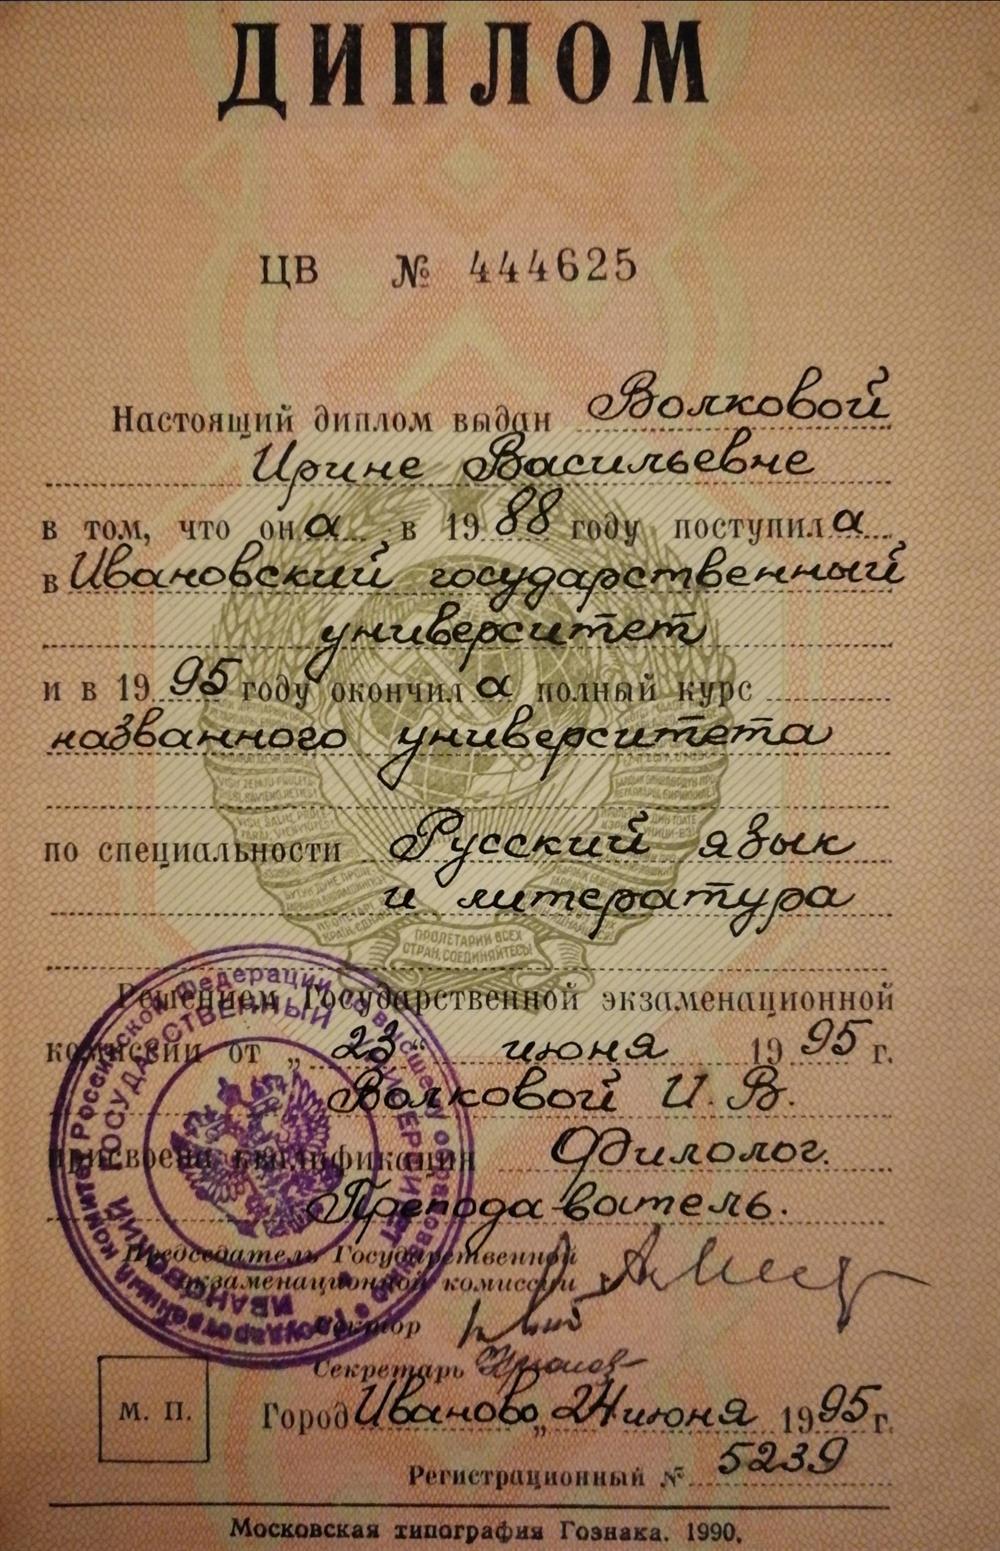 ДИПЛОМ
ЦВ № 444625
Настоящий диплом выдан Волковой
Ирине Васильевне
в том, что она в 1988 году поступила
в Ивановский государственный
университет
и в 1995 году окончила полный курс
названного университета
по специальности Русский язык
и литература
ПРОЛЕТАРИИ ВСЕХ
СТРАН, СОЕДИНЯЙТЕСЬ!
Решением Государственной экзаменационной
комиссии от „23“ июня 1995 г.
Волковой И. В.
присвоена квалификация Филолог.
Преподаватель.
Председатель Государственной
экзаменационной комиссии
Ректор
Секретарь
М. П.
Город Иваново „24 июня 1995 г.
Регистрационный № 5239
Московская типография Гознака. 1990.